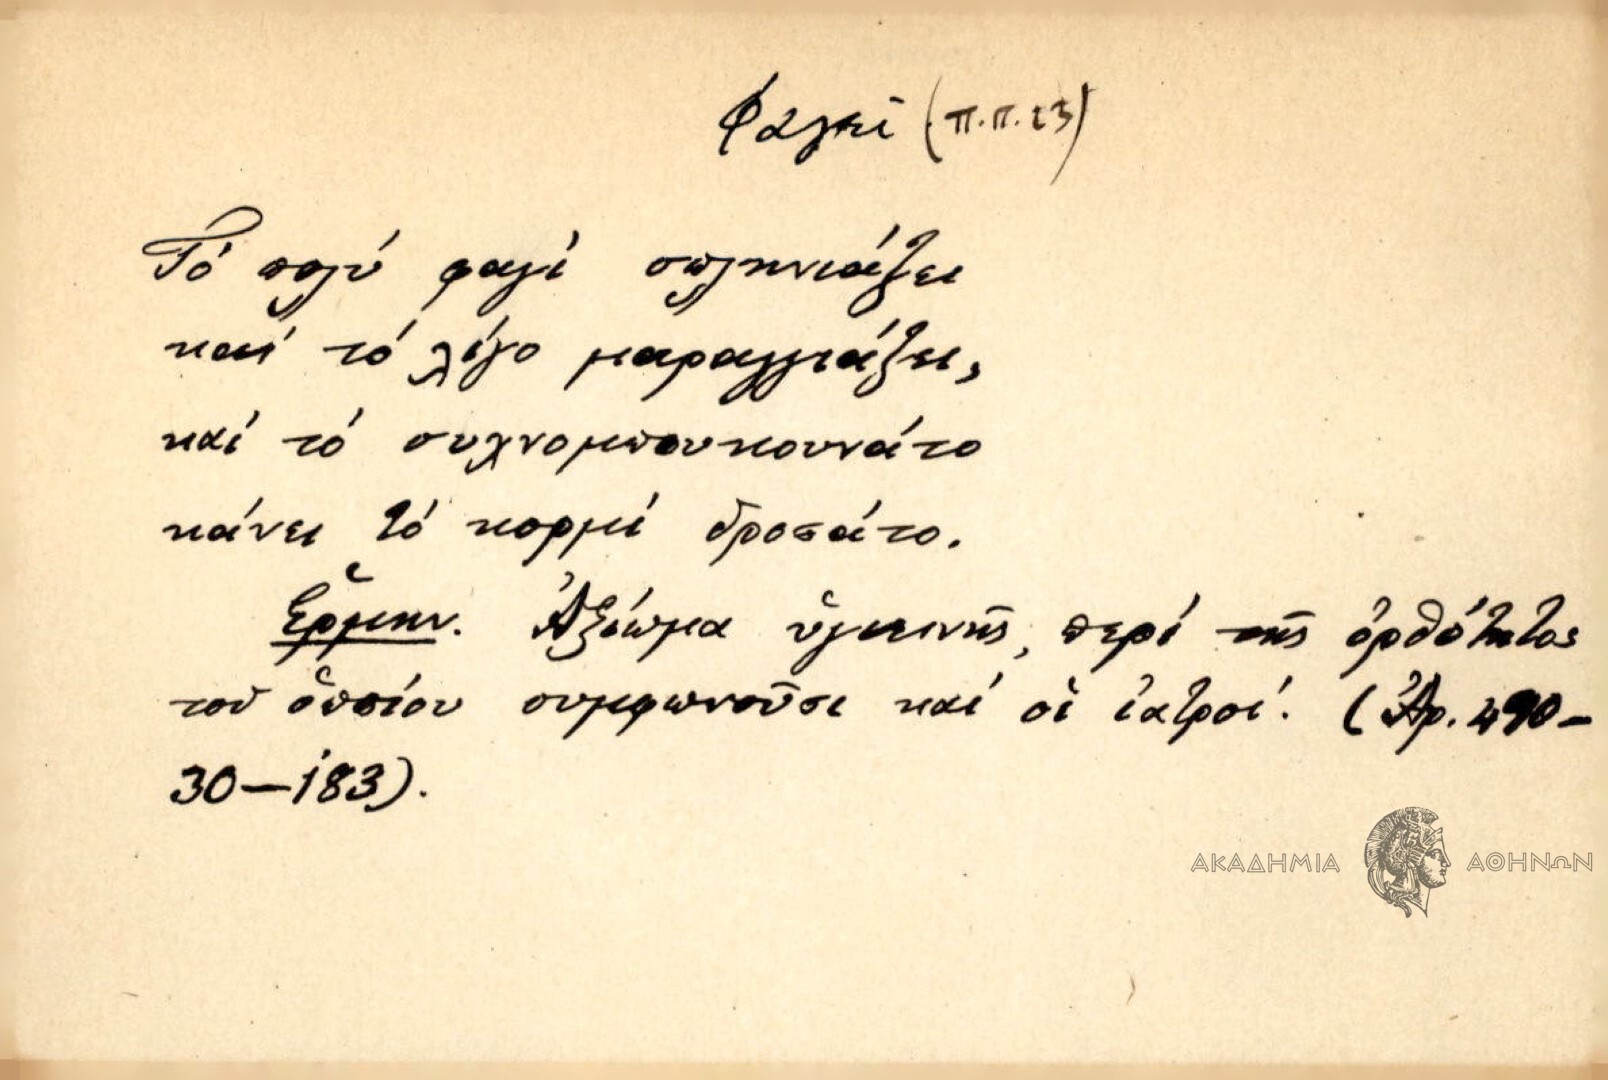 Φαγεῖ (π.π. 23)
Τό πολύ φαγί σπληνιάζει
καί τό λίγο μαραγγιάζει,
καί τό συχνομπουκουνάτο
κάνει τό κορμί δροσάτο.
Ἑρμην. Ἀξίωμα ὑγιεινῆς, περί τῆς ὀρθότητος
τοῦ ὁποίου συμφωνοῦσι καί οἱ ἰατροί. (Ἀρ. 490–
30–183).
ΑΚΑΔΗΜΙΑ ΑΘΗΝΩΝ